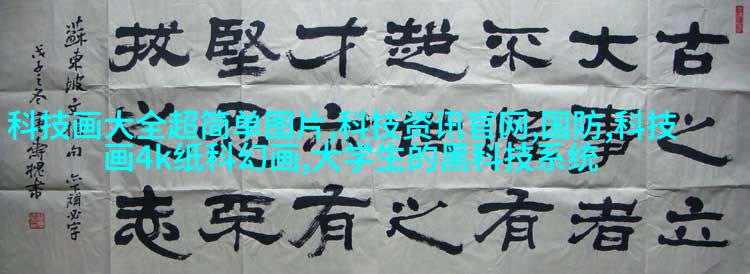 古之立
大事者
不惟有
超世之
才亦有
堅忍不
拔之志
蘇東坡文句 亦漏必字
戊子之冬
科技画大全超简单图片,科技资讯官网,国防,科技
画4k纸科幻画,大学生的黑科技系统